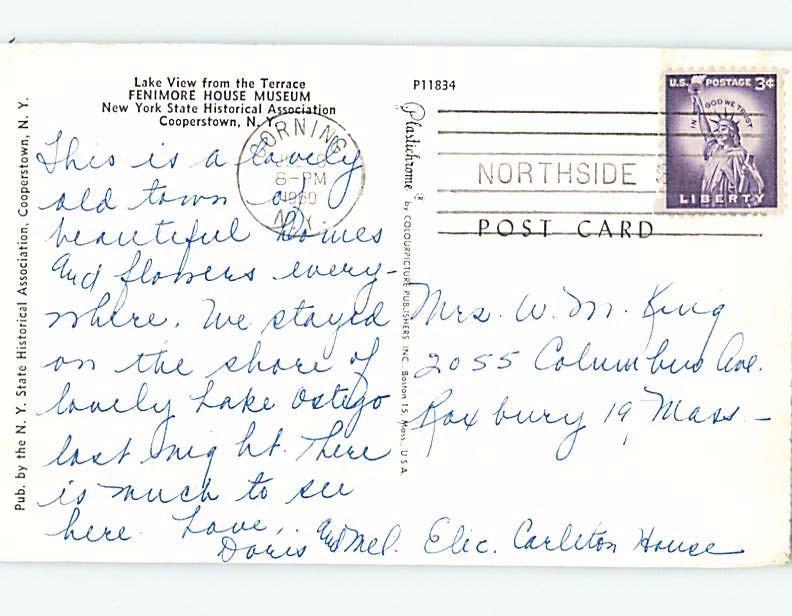 Lake View from the Terrace
FENIMORE HOUSE MUSEUM
New York State Historical Association
Cooperstown, N. Y.
P11834
Pub. by the N. Y. State Historical Association, Cooperstown, N. Y.
This is a lovely
old town of
beautiful homes
and flowers every-
where. We stayed
on the shore of
lovely Lake Ostego
last night. There
is much to see
here. Love,
Doris and Mel.
Plastichrome ® by COLOURPICTURE PUBLISHERS, INC. Boston 15, Mass., U.S.A.
CORNING
8-PM
1960
N.Y.
NORTHSIDE
U.S. POSTAGE 3¢
IN GOD WE TRUST
LIBERTY
POST CARD
Mrs. W. M. King
2055 Columbus Ave.
Roxbury 19, Mass-
Elic. Carleton House